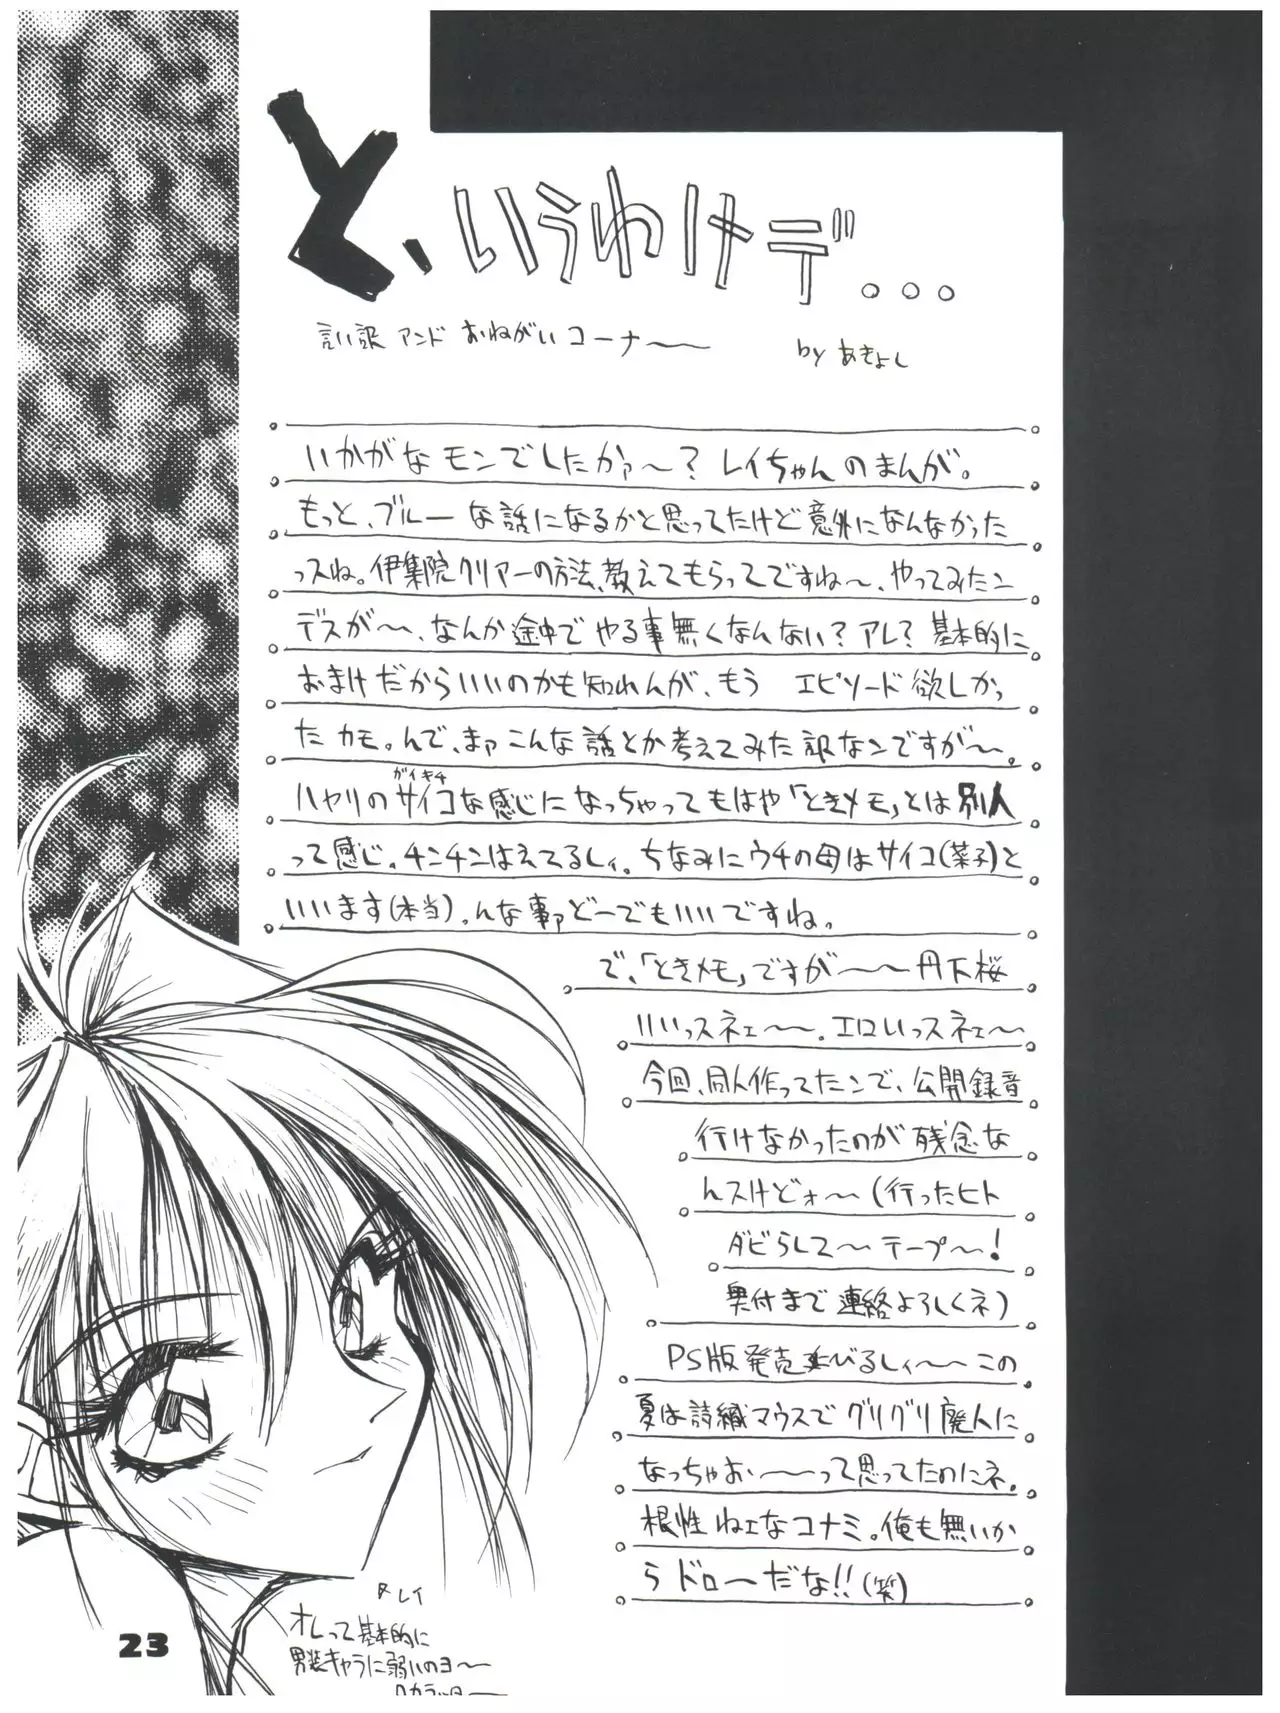 と、いうわけデ...
言い訳 アンド おねがい コーナ〜〜
by あきよし
いかがなモンでしたかァ〜？レイちゃんのまんが。
もっと、ブルーな話になるかと思ってたけど意外になんなかった
っスね。伊集院クリアーの方法、教えてもらってですね〜、やってみたン
デスが〜、なんか途中でやる事無くなんない？アレ？基本的に
おまけだからいいのかも知れんが、もう エピソード欲しかっ
たカモ。んで、まァこんな話とか考えてみた訳なンですが〜。
ガイキチ
ハヤリのサイコな感じになっちゃってもはや「ときメモ」とは別人
って感じ。チンチンはえてるしィ。ちなみにウチの母はサイコ(菜子)と
いいます(本当)。んな事ァどーでもいいですね。
で、「ときメモ」ですが〜〜丹下桜
いいっスネェ〜〜。エロいっスネェ〜
今回、同人作ってたンで、公開録音
行けなかったのが残念な
んスけどォ〜(行ったヒト
ダビらして〜テープ〜！
奥付まで連絡よろしくネ)
PS版発売延びるしィ〜〜この
夏は詩織マウスでグリグリ廃人に
なっちゃおぃ〜〜って思ってたのにネ。
根性ねェなコナミ。俺も無いか
らドロ〜だな!!(笑)
レイ
オレって基本的に
男装キャラに弱いのヨ〜
23